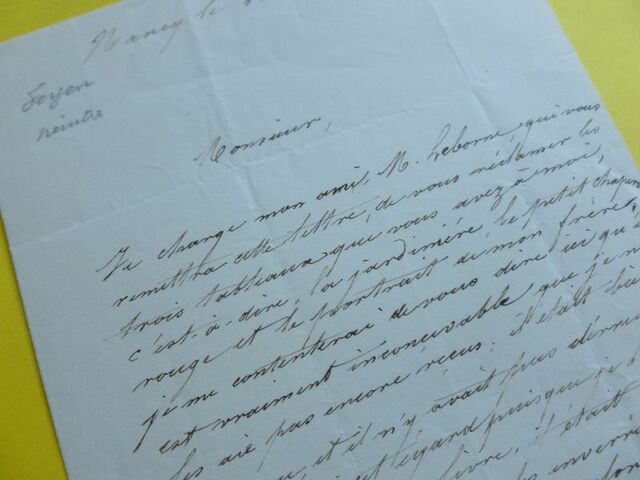 Nancy le
Soyer
peintre
Monsieur,
Je charge mon ami, M. Leborne, qui vous
remettra cette lettre, de vous réclamer les
trois tableaux que vous avez à moi,
c'est-à-dire; la jardinière, le petit chaperon
rouge et le portrait de mon frère,
je me contenterai de vous dire ici qu'il
est vraiment inconcevable que je ne
les aie pas encore reçus: il était bien
et il n'y avait pas
égard puisque je
livre, il était
les